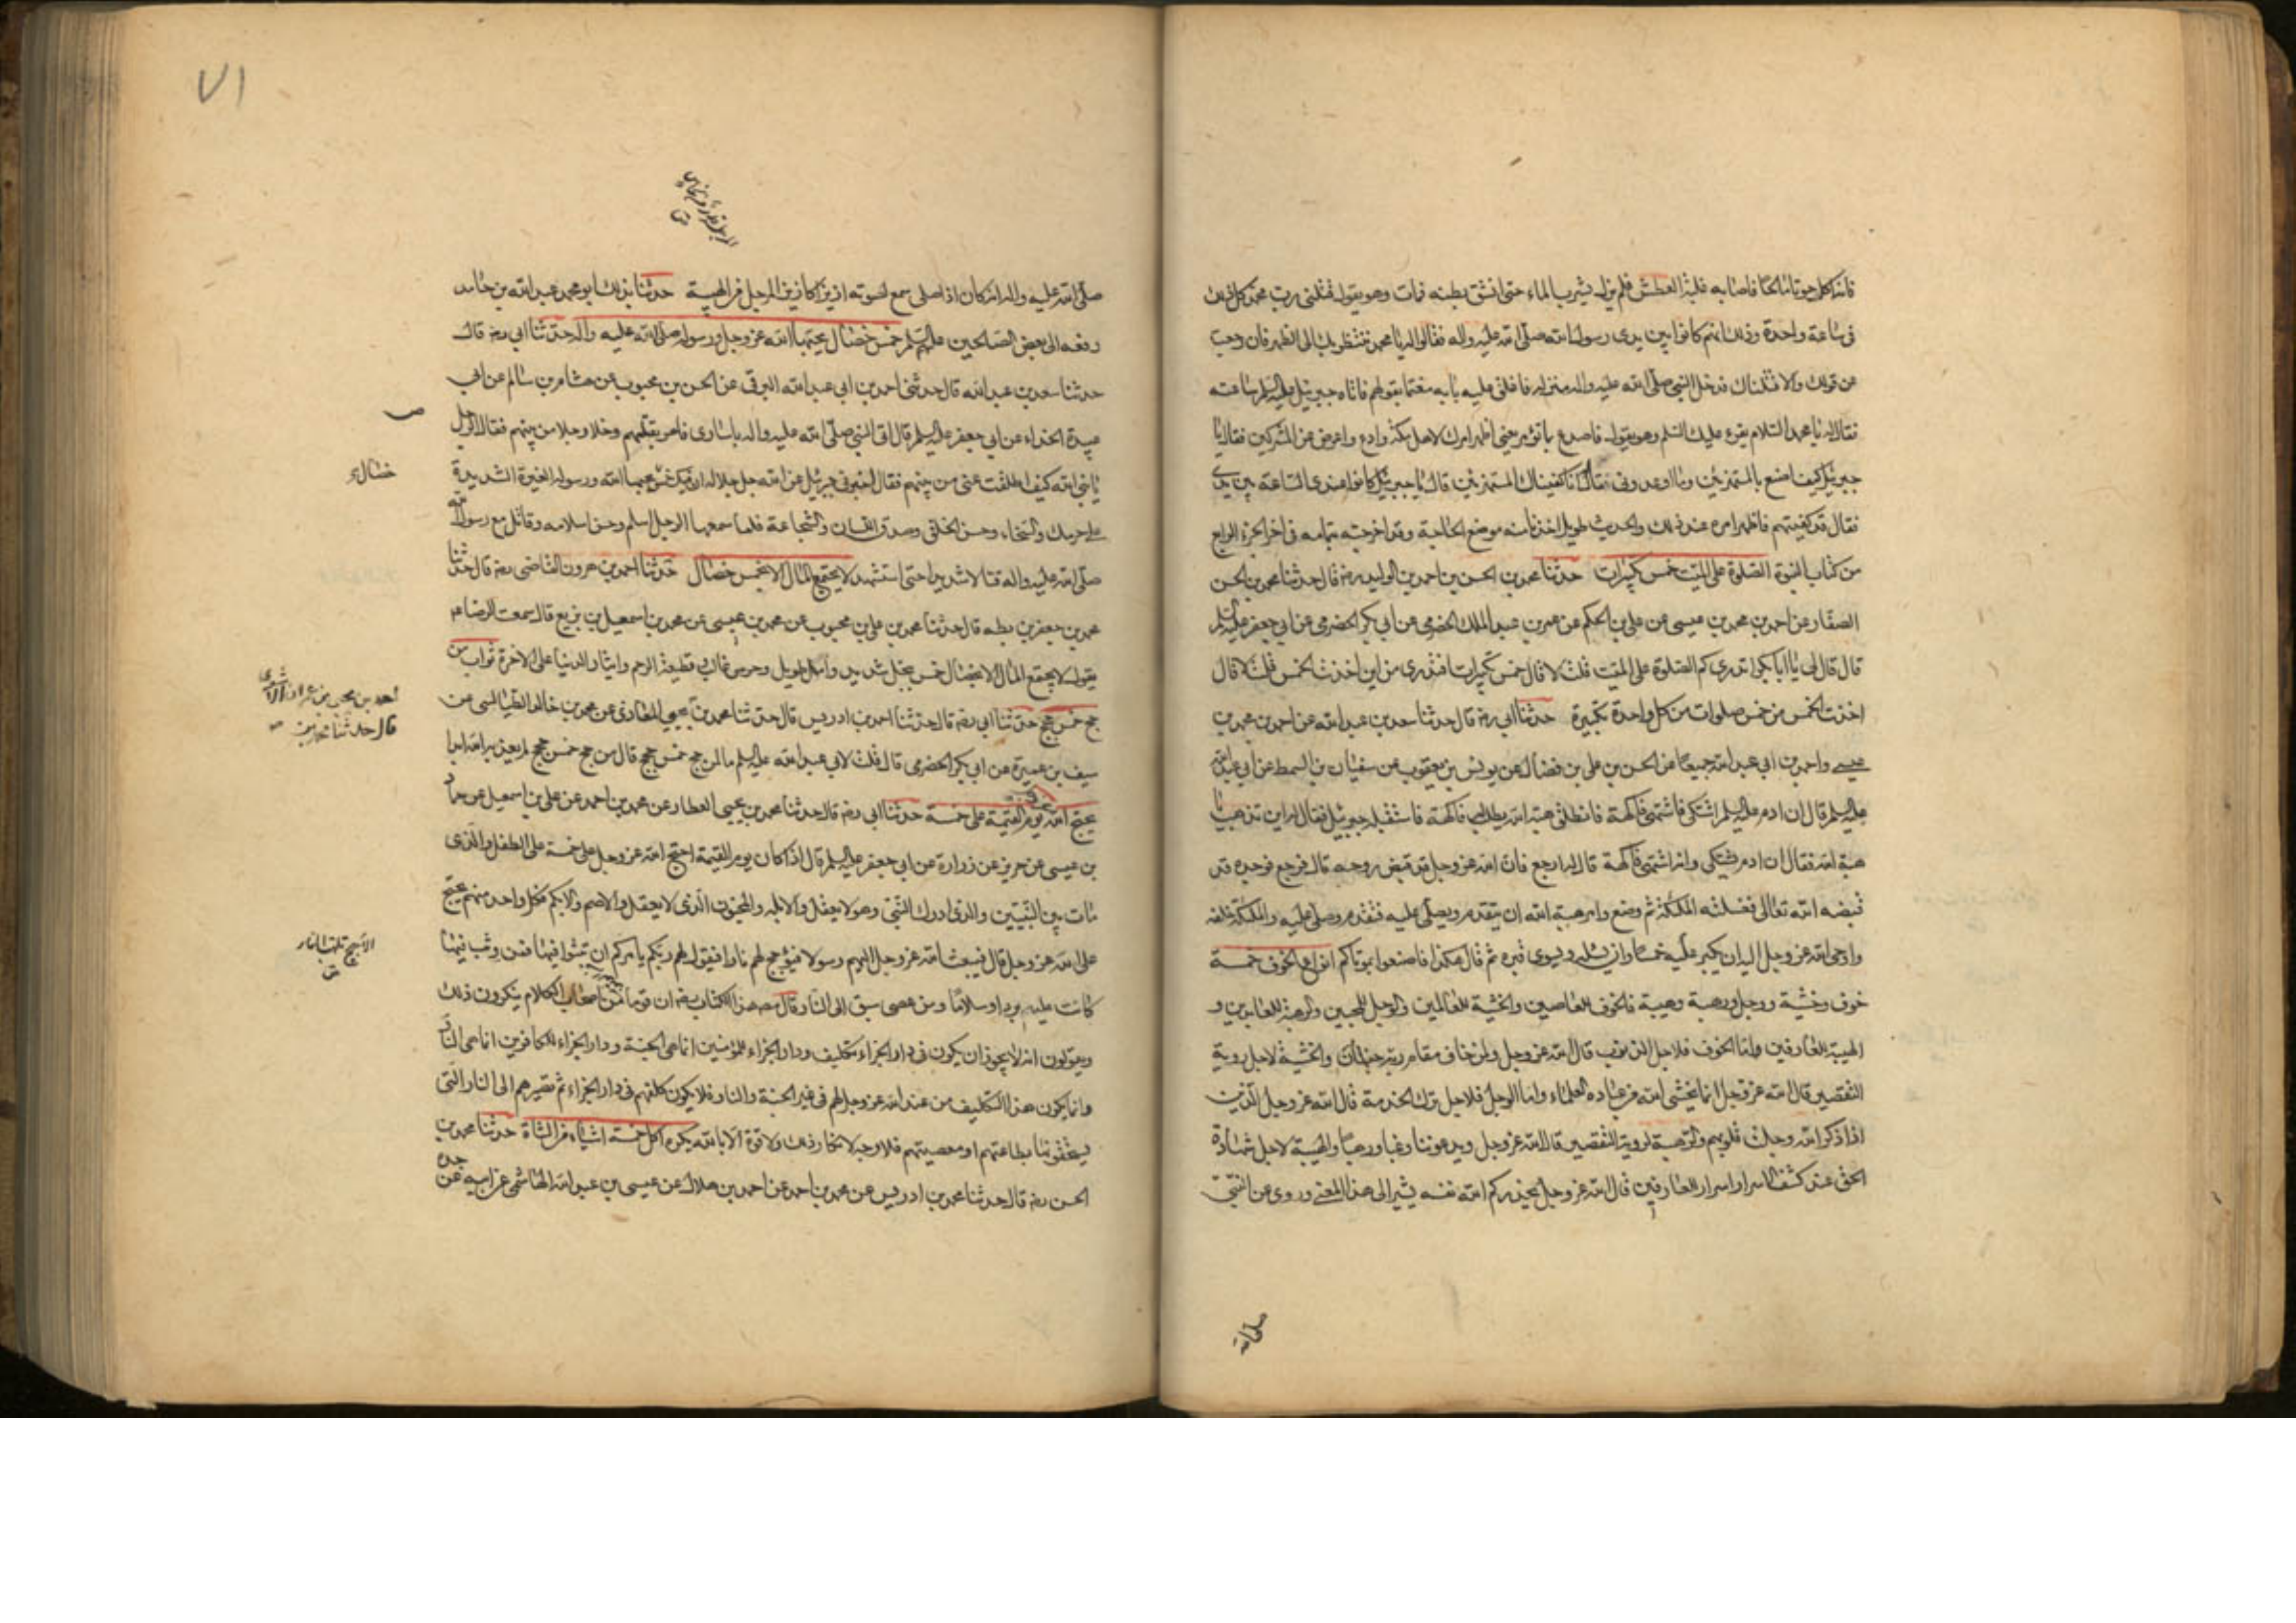 فانه اكل حوتا مالحا فاصابه غلبة العطش فلم يزل يشرب الماء حتى انشق بطنه فمات وهو يقول قتلنى رب محمد كل ذلك
فى ساعة واحدة وذلك انهم كانوا بين يدى رسول الله صلى الله عليه واله فقالوا له يا محمد ننتظر بك الى الظهر فان رجعت
عن قولك والا قتلناك فدخل النبى صلى الله عليه واله منزله فاغلق عليه بابه مغتما بقولهم فاتاه جبرئيل عليه السلم ساعته
فقال له يا محمد السلام يقرء عليك السلم وهو يقول فاصدع بما تؤمر يعنى اظهر امرك لاهل مكة وادع واعرض عن المشركين فقال يا
جبرئيل كيف اصنع بالمستهزئين وما اوعدونى فقال انا كفيناك المستهزئين قال يا جبرئيل كانوا عندى الساعة بين يدى
فقال قد كفيتهم فاظهر امره عند ذلك والحديث طويل اخذنا منه موضع الحاجة وقد اخرجته بتمامه فى اخر الجزء الرابع
من كتاب النبوة الصلوة على الميت خمس تكبيرات حدثنا محمد بن الحسن بن احمد بن الوليد رضه قال حدثنا محمد بن الحسن
الصفار عن احمد بن محمد بن عيسى عن على بن الحكم عن عمر بن عبد الملك الحضرمى عن ابى بكر الحضرمى عن ابى جعفر عليه السلم
قال قال لى يا ابا بكر اتدرى كم الصلوة على الميت قلت لا قال خمس تكبيرات افتدرى من اين اخذت الخمس قلت لا قال
اخذت الخمس من خمس صلوات من كل واحدة تكبيرة حدثنا ابى رضه قال حدثنا سعد بن عبد الله عن احمد بن محمد بن
عيسى واحمد بن ابى عبد الله جميعا عن الحسن بن على بن فضال عن يونس بن يعقوب عن سفيان بن السمط عن ابى عبد الله
عليه السلم قال ان ادم عليه السلم اشتكى فاشتهى فاكهة فانطلق هبة الله يطلب فاكهة فاستقبله جبرئيل فقال له اين تذهب يا
هبة الله فقال ان ادم يشتكى وانه اشتهى فاكهة قال له ارجع فان الله عز وجل قد قبض روحه قال فرجع فوجده قد
قبضه الله تعالى فغسلته الملئكة ثم وضع وامر هبة الله ان يتقدم ويصلى عليه فتقدم وصلى عليه والملئكة خلفه
واوحى الله عز وجل اليه ان يكبر عليه خمسا وان يسله ويسوى قبره ثم قال هكذا فاصنعوا بموتاكم انواع الخوف خمسة
خوف وخشية ووجل ورهبة وهيبة فالخوف للعاصين والخشية للعالمين والوجل للمخبتين والرهبة للعابدين و
الهيبة للعارفين واما الخوف فلاجل الذنوب قال الله عز وجل ولمن خاف مقام ربه جنتان والخشية لاجل رؤية
التقصير قال الله عز وجل انما يخشى الله من عباده العلماء واما الوجل فلاجل ترك الخدمة قال الله عز وجل الذين
اذا ذكر الله وجلت قلوبهم والرهبة لرؤية التقصير قال الله عز وجل ويدعوننا رغبا ورهبا والهيبة لاجل شهادة
الحق عند كشف الاسرار اسرار العارفين قال الله عز وجل يحذركم الله نفسه يشير الى هذا المعنى وروى عن النبى
صلى الله
٧١
صلى الله عليه واله انه كان اذا صلى سمع لصوته ازيز كازيز المرجل من الهيبة حدثنا بذلك ابو محمد عبد الله بن حامد
رفعه الى بعض الصالحين عليهم السلم خمس خصال يحبها الله عز وجل ورسوله صلى الله عليه واله حدثنا ابى رضه قال
حدثنا سعد بن عبد الله قال حدثنى احمد بن ابى عبد الله البرقى عن الحسن بن محبوب عن هشام بن سالم عن ابى
عبيدة الحذاء عن ابى جعفر عليه السلم قال اتى النبى صلى الله عليه واله باسارى فامر بقتلهم وخلا رجلا من بينهم فقال الرجل
يا نبى الله كيف اطلقت عنى من بينهم فقال اخبرنى جبرئيل عن الله جل جلاله ان فيك خمس يحبها الله ورسوله الغيرة الشديدة
خصال
على حرمك والسخاء وحسن الخلق وصدق اللسان والشجاعة فلما سمعها الرجل اسلم وحسن اسلامه وقاتل مع رسول الله
صلى الله عليه واله قتالا شديدا حتى استشهد لا يجتمع المال الا بخمس خصال حدثنا احمد بن هرون القاضى رضه قال حدثنا
محمد بن جعفر بن بطه قال حدثنا محمد بن على بن محبوب عن محمد بن عيسى عن محمد بن اسمعيل بن بزيع قال سمعت الرضا عم
يقول لا يجتمع المال الا بخصال خمس ببخل شديد وامل طويل وحرص غالب وقطيعة الرحم وايثار الدنيا على الاخرة ثواب من
حج خمس حجج حدثنا ابى رضه قال حدثنا احمد بن ادريس قال حدثنا محمد بن يحيى المعاذى عن محمد بن خالد الطيالسى عن
سيف بن عميرة عن ابى بكر الحضرمى قال قلت لابى عبد الله عليه السلم ما لمن حج خمس حجج قال من حج خمس حجج لم يعذبه الله ابدا
يحتج الله يوم القيمة على خمسة حدثنا ابى رضه قال حدثنا محمد بن يحيى العطار عن محمد بن احمد عن على بن اسمعيل عن حماد
بن عيسى عن حريز عن زرارة عن ابى جعفر عليه السلم قال اذا كان يوم القيمة احتج الله عز وجل على خمسة على الطفل والذى
مات بين النبيين والذى ادرك النبى وهو لا يعقل والابله والمجنون الذى لا يعقل والاصم والابكم فكل واحد منهم يحتج
على الله عز وجل قال فيبعث الله عز وجل اليهم رسولا فيؤجج لهم نارا فيقول لهم ربكم يامركم ان تثبوا فيها فمن وثب فيها
كانت عليه بردا وسلاما ومن عصى سيق الى النار قال مصـ هذا الكتاب رضه ان قوما من اصحاب الكلام ينكرون ذلك
ويقولون انه لا يجوز ان يكون فى دار الجزاء تكليف ودار الجزاء للمؤمنين انما هى الجنة ودار الجزاء للكافرين انما هى النار
وانما يكون هذا التكليف من عند الله عز وجل لهم فى غير الجنة والنار فلا يكون كلفهم فى دار الجزاء ثم يصيرهم الى النار التى
يستحقونها بطاعتهم او معصيتهم فلا وجه لانكار ذلك ولا قوة الا بالله يكره اكل خمسة اشياء من الشاة حدثنا محمد بن
الحسن رضه قال حدثنا محمد بن ادريس عن محمد بن احمد عن احمد بن هلال عن عيسى بن عبد الله الهاشمى عن ابيه عن
جده